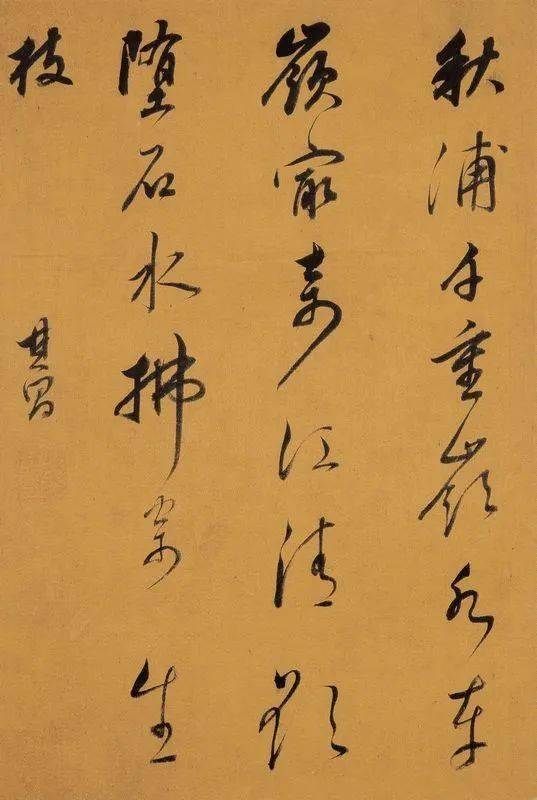 秋浦千重嶺水車
嶺最奇江清欲
堕石水拂寄生
枝
其昌